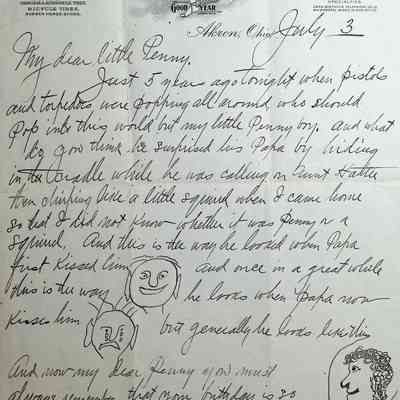 BICYCLE TIRES,
RUBBER HORSE SHOES.
GOOD YEAR
SPECIALTIES.
Akron, Ohio, July 3
My dear little Penny.
Just 5 year ago tonight when pistols
and torpedoes were popping all around who should
Pop into this world but my little Penny boy. And what
do you think he surprised his Papa by hiding
in the cradle while he was calling on Aunt Hattie
then chirping like a little squirrel when I came home
so that I did not know whether it was Penny or a
squirrel. And this is the way he looked when Papa
first kissed him and once in a great while
this is the way he looks when Papa now
kisses him but generally he looks like this
And now my dear Penny you must
always remember that your birthday is so